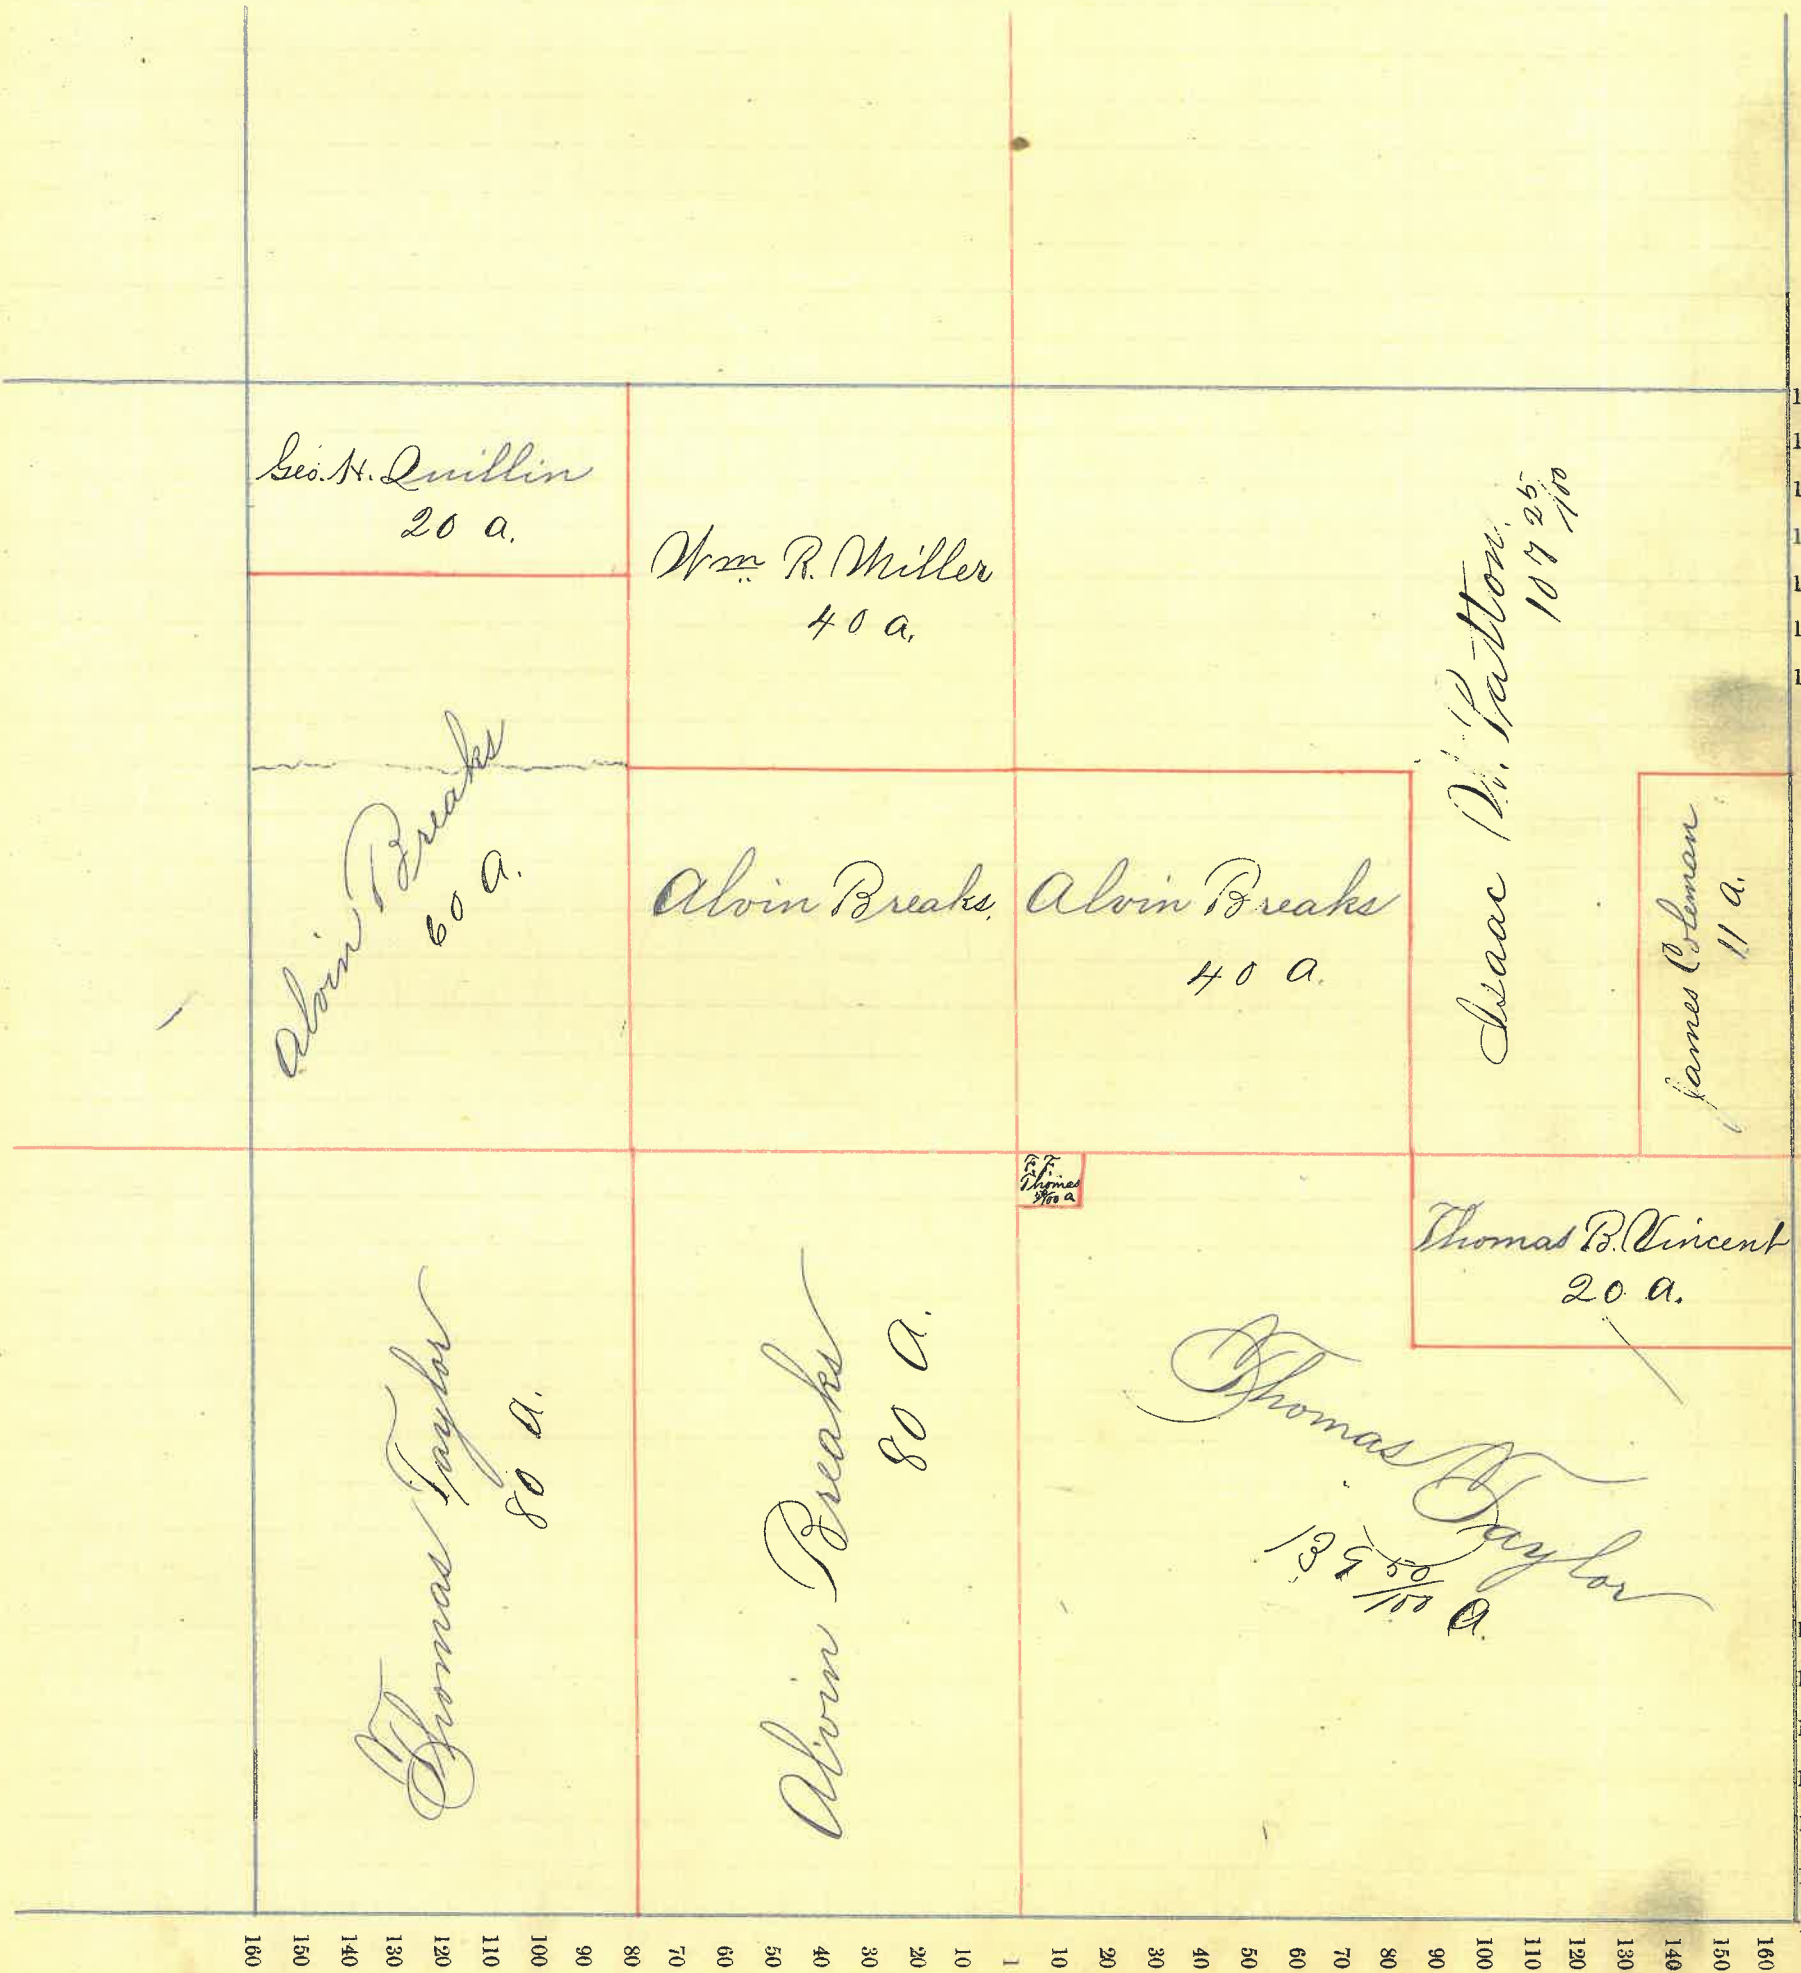 Geo. H. Quillin
20 a.
Wm R. Miller
40 a.
Isaac
Patton.
107 25/100
Alvin Breaks
60 a.
Alvin Breaks.
Alvin Breaks
40 a.
James Coleman
11 a.
F. F.
Thomas
a
Thomas B. Vincent
20 a.
Thomas Taylor
80 a.
Alvin Breaks
80 a.
Thomas Taylor
139 50/100 a.
160 150 140 130 120 110 100 90 80 70 60 50 40 30 20 10 1 10 20 30 40 50 60 70 80 90 100 110 120 130 140 150 160